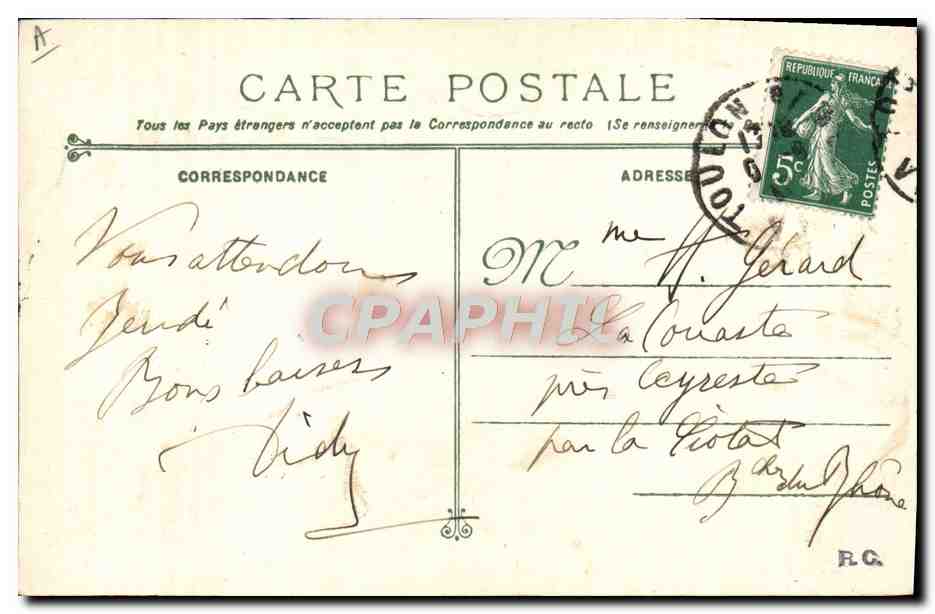 A
CARTE POSTALE
Tous les Pays étrangers n'acceptent pas la Correspondance au recto (Se renseigner
CORRESPONDANCE
ADRESSE
REPUBLIQUE FRANÇA
5c
POSTES
TOULON
Vous attendons
Jeudi
Bons baisers
Didy
Mme H. Gérard
La Couaste
près Ceyreste
par la Ciotat
Bches du Rhône
CPAPHIL
R.C.